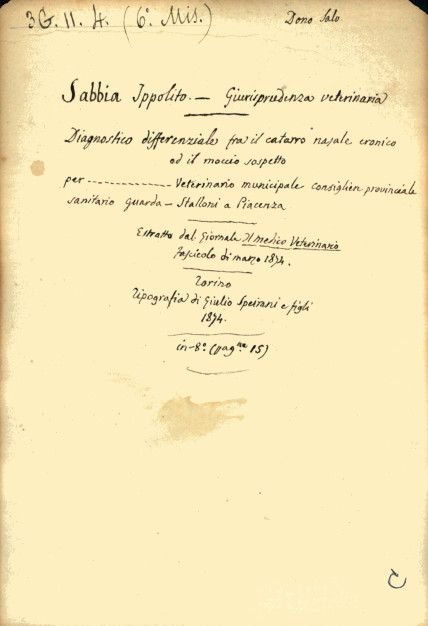 3G. 11. 4. (6º Mis.)
Dono Salv.
Sabbia Ippolito. — Giurisprudenza veterinaria
Diagnostico differenziale fra il catarro nasale cronico
od il moccio sospetto
per ------------- Veterinario municipale consiglien provinciale
sanitario guarda - Stalloni a Piacenza
Estratto dal Giornale Il medico Veterinario
fascicolo di marzo 1874.
Torino
Tipografia di Giulio Speirani e figli
1874.
in-8º (pagne 15)